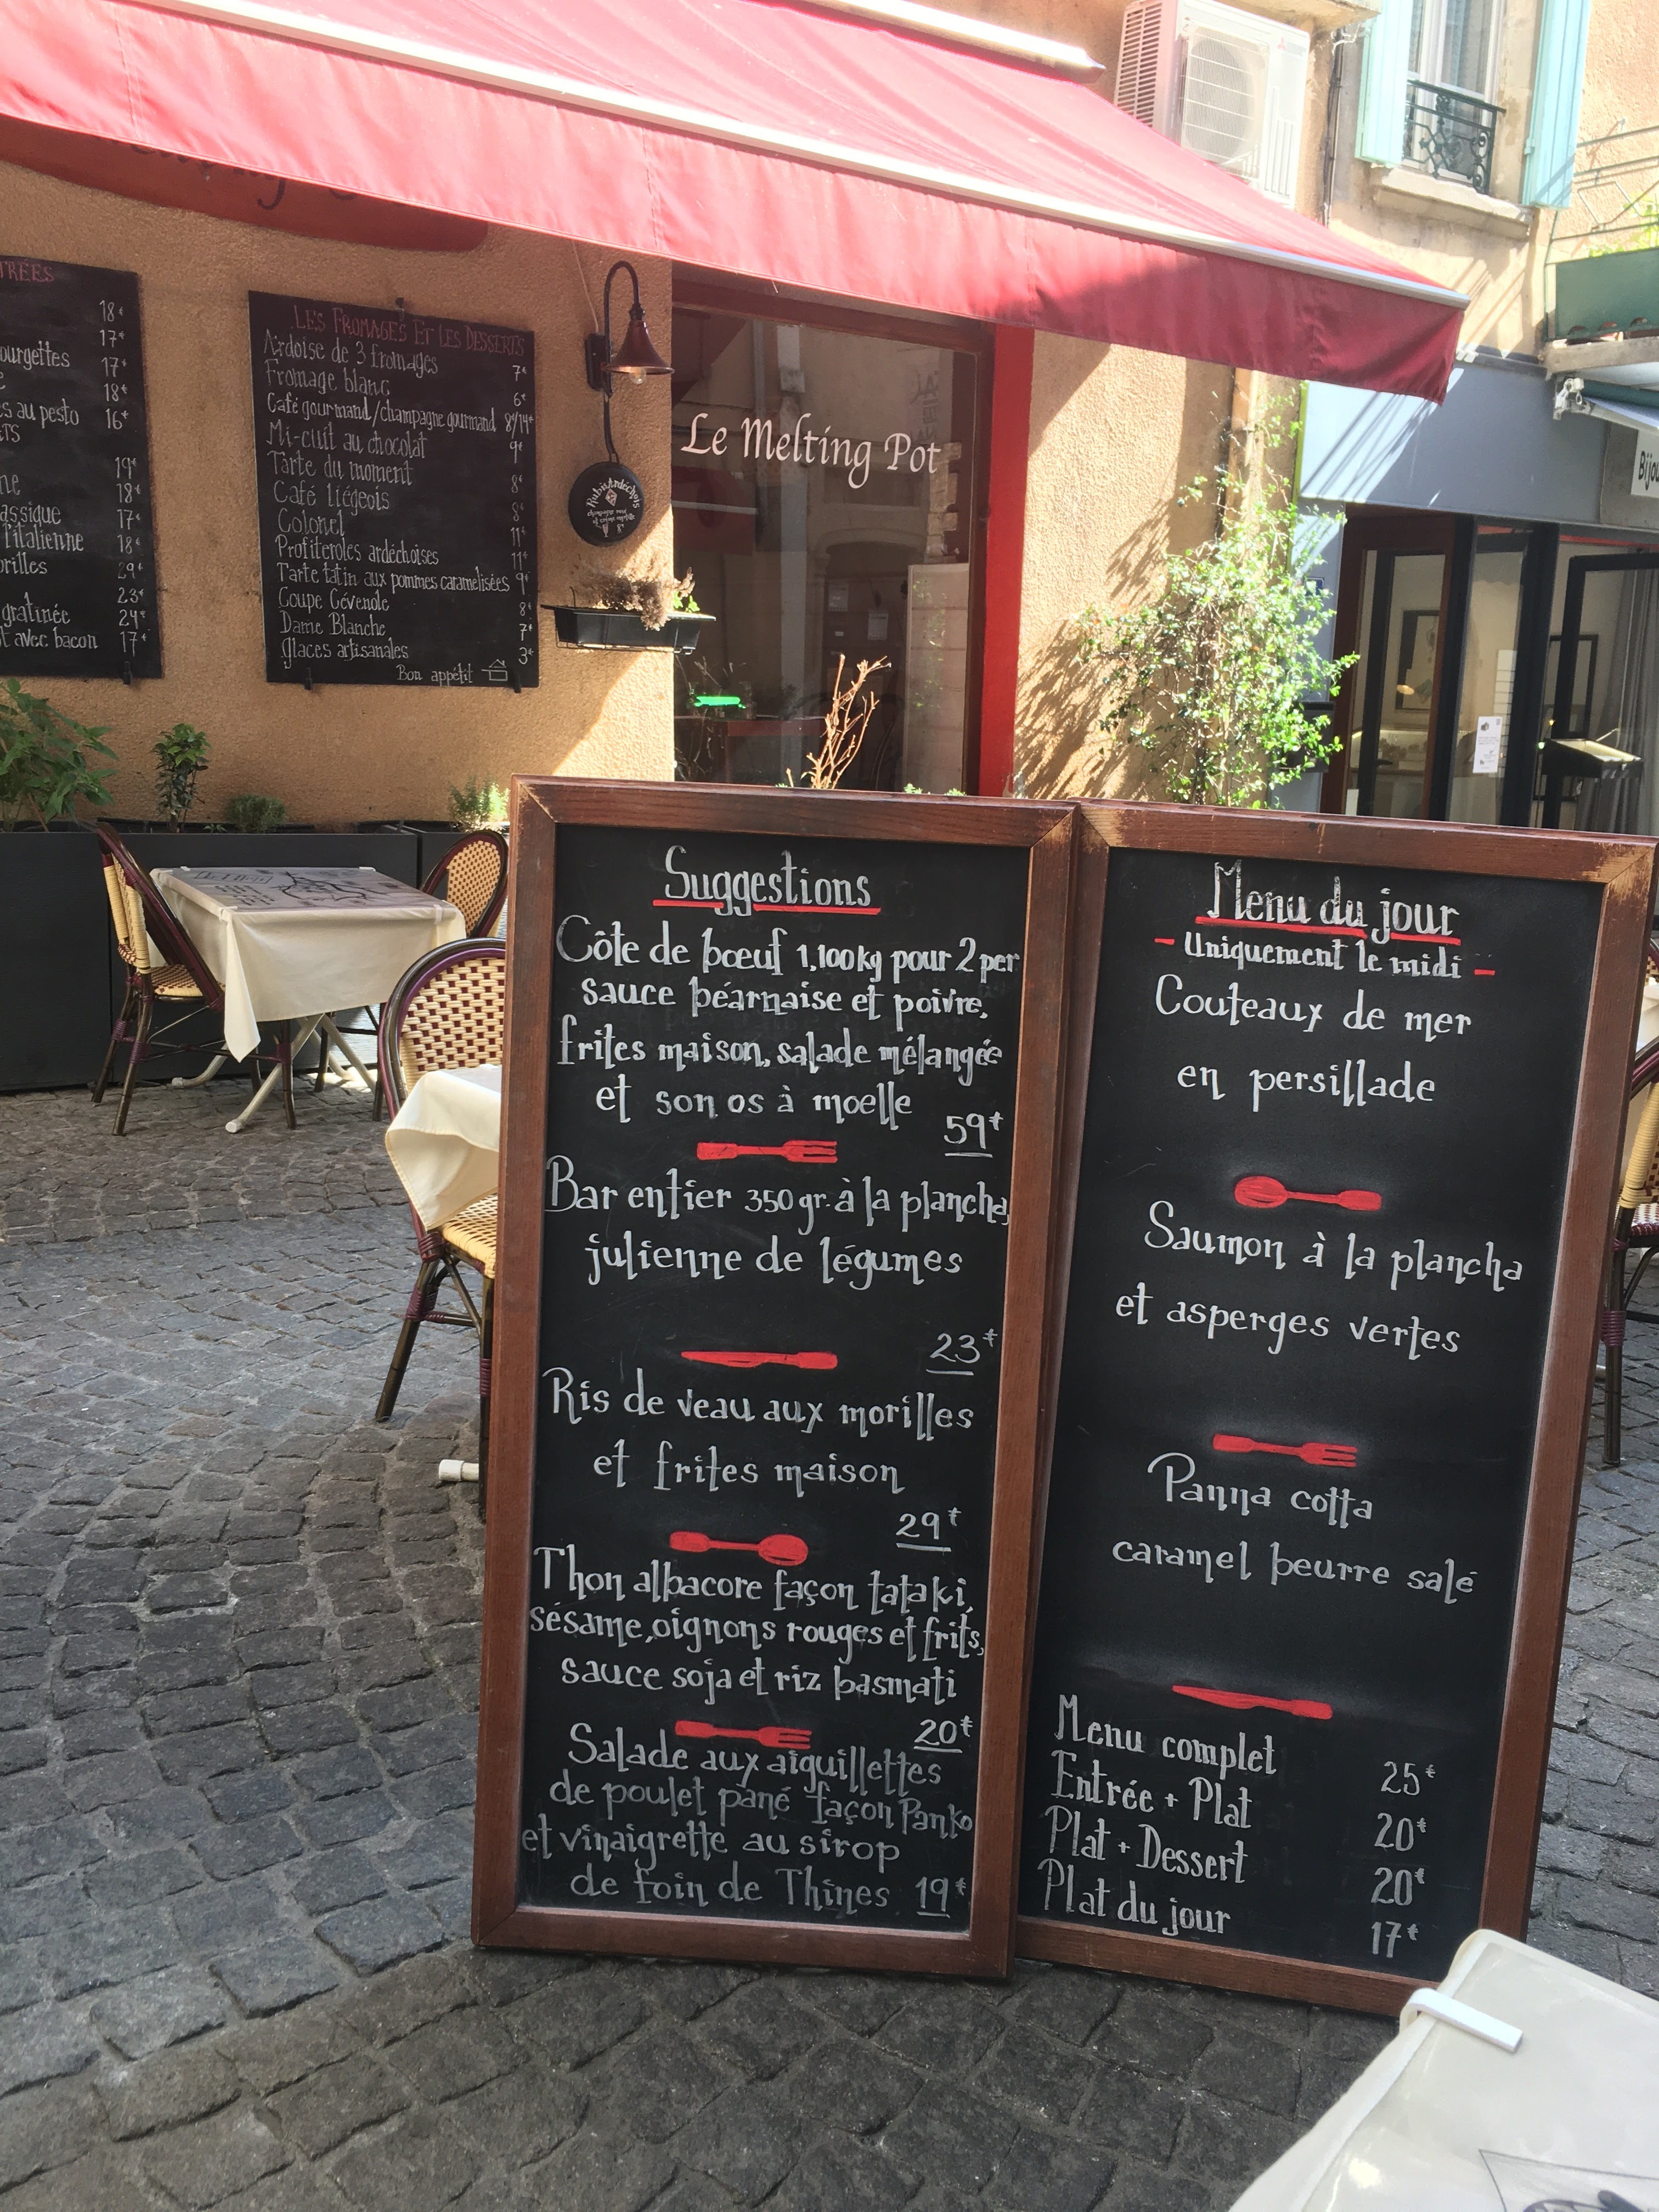 TRÉES
18€
17€
ourgettes 17€
18€
s au pesto 16€
TS
19€
ne 18€
assique 17€
l'italienne 18€
orilles 29€
23€
gratinée 24€
t avec bacon 17€
LES FROMAGES ET LES DESSERTS
Ardoise de 3 fromages 7€
Fromage blanc 6€
Café gourmand/champagne gourmand 8€/14€
Mi-cuit au chocolat 9€
Tarte du moment 8€
Café liégeois 8€
Colonel 11€
Profiteroles ardéchoises 11€
Tarte tatin aux pommes caramelisées 9€
Coupe Cévenole 8€
Dame Blanche 7€
Glaces artisanales 3€
Bon appétit
Rubis Ardéchois
Le Melting Pot
Bijou
Suggestions
Côte de bœuf 1,100kg pour 2 per
sauce béarnaise et poivre,
frites maison, salade mélangée
et son os à moelle
59€
Bar entier 350gr. à la plancha,
julienne de légumes
23€
Ris de veau aux morilles
et frites maison
29€
Thon albacore façon tataki,
sésame, oignons rouges et frits,
sauce soja et riz basmati
20€
Salade aux aiguillettes
de poulet pané façon Panko
et vinaigrette au sirop
de foin de Thines 19€
Menu du jour
- Uniquement le midi -
Couteaux de mer
en persillade
Saumon à la plancha
et asperges vertes
Panna cotta
caramel beurre salé
Menu complet 25€
Entrée + Plat 20€
Plat + Dessert 20€
Plat du jour 17€